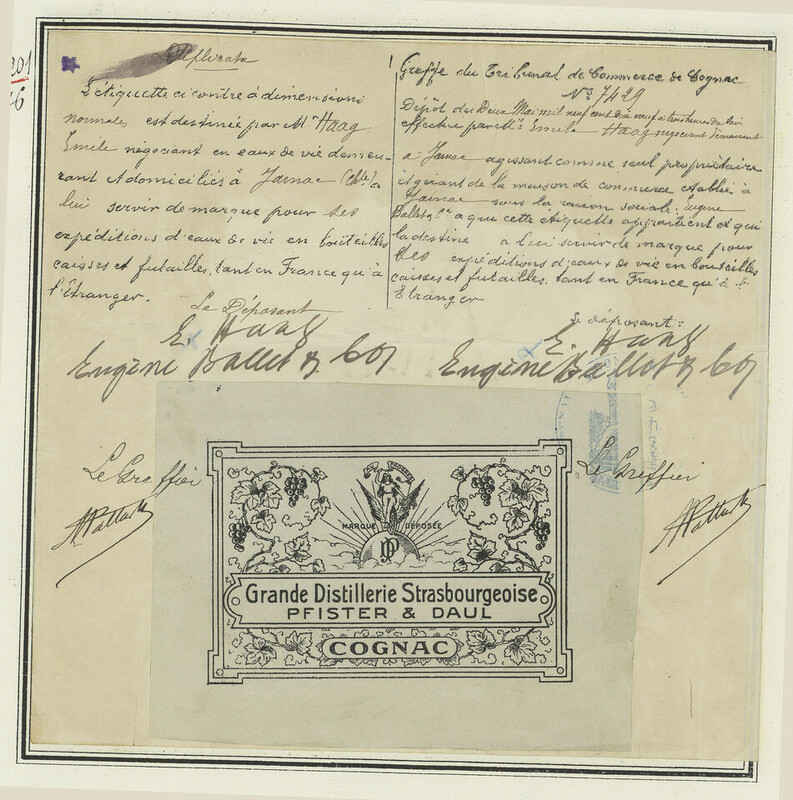 Duplicata
L'étiquette ci contre à dimensions
normales est destinée par Mr Haag
Emile négociant en eaux de vie demeu-
rant et domiciliés à Jarnac (Chte) a
lui servir de marque pour ses
expéditions d'eaux de vie en bouteilles
caisses et futailles, tant en France qu'à
l'Étranger.
Le Déposant
E. Haag
Eugène Ballet & Co
Greffe du Tribunal de Commerce de Cognac
No 7429
Dépôt du Deux Mai mil neuf cent dix neuf
effectué par Mr Emile Haag négociant demeurant
a Jarnac agissant comme seul propriétaire
et gérant de la maison de commerce établie à
Jarnac sous la raison sociale: Eugène
Ballet & Ce a qui cette étiquette appartient et qui
la destine a lui servir de marque pour
ses expéditions d'eaux de vie en bouteilles
caisses et futailles, tant en France qu'à l'
Etranger
Le déposant:
E. Haag
Eugène Ballet & Co
Le Greffier
Le Greffier
MARQUE DÉPOSÉE
Grande Distillerie Strasbourgeoise
PFISTER & DAUL
COGNAC